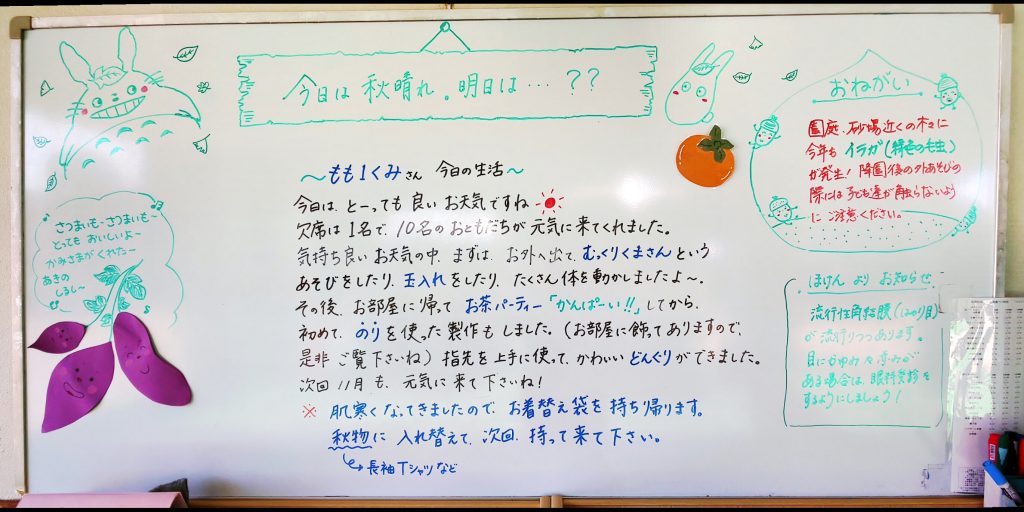 今日は 秋晴れ。明日は…??
～もも1くみさん 今日の生活～
今日は、とーっても 良い お天気ですね
欠席は 1名で、10名の おともだちが 元気に来てくれました。
気持ち良い お天気の中、まずは、お外へ出て、むっくりくまさん という
あそびをしたり、玉入れをしたり、たくさん体を動かしましたよ～。
その後、お部屋に帰って お茶パーティー「かんぱーい!!」してから、
初めて、のりを使った製作も しました。(お部屋に飾ってありますので、
是非 ご覧下さいね) 指先を上手に使って、かわいい どんぐりができました。
次回 11月も、元気に 来て下さいね!
※ 肌寒くなってきましたので、お着替え袋を 持ち帰ります。
秋物に 入れ替えて、次回、持って来て下さい。
長袖Tシャツなど
さつまいも-さつまいも～
とっても おいしいよー
かみさまが くれた～
あきの
しるし～
おねがい
園庭、砂場近くの木々に
今年も イラガ(緑色の毛虫)
が発生! 降園後の外あそびの
際には 子ども達が触らないよう
に ご注意ください。
ほけん より お知らせ
流行性角結膜(はやり目)
が 流行りつつあります。
目にかゆみや
ある場合は、眼科受診を
するようにしましょう!